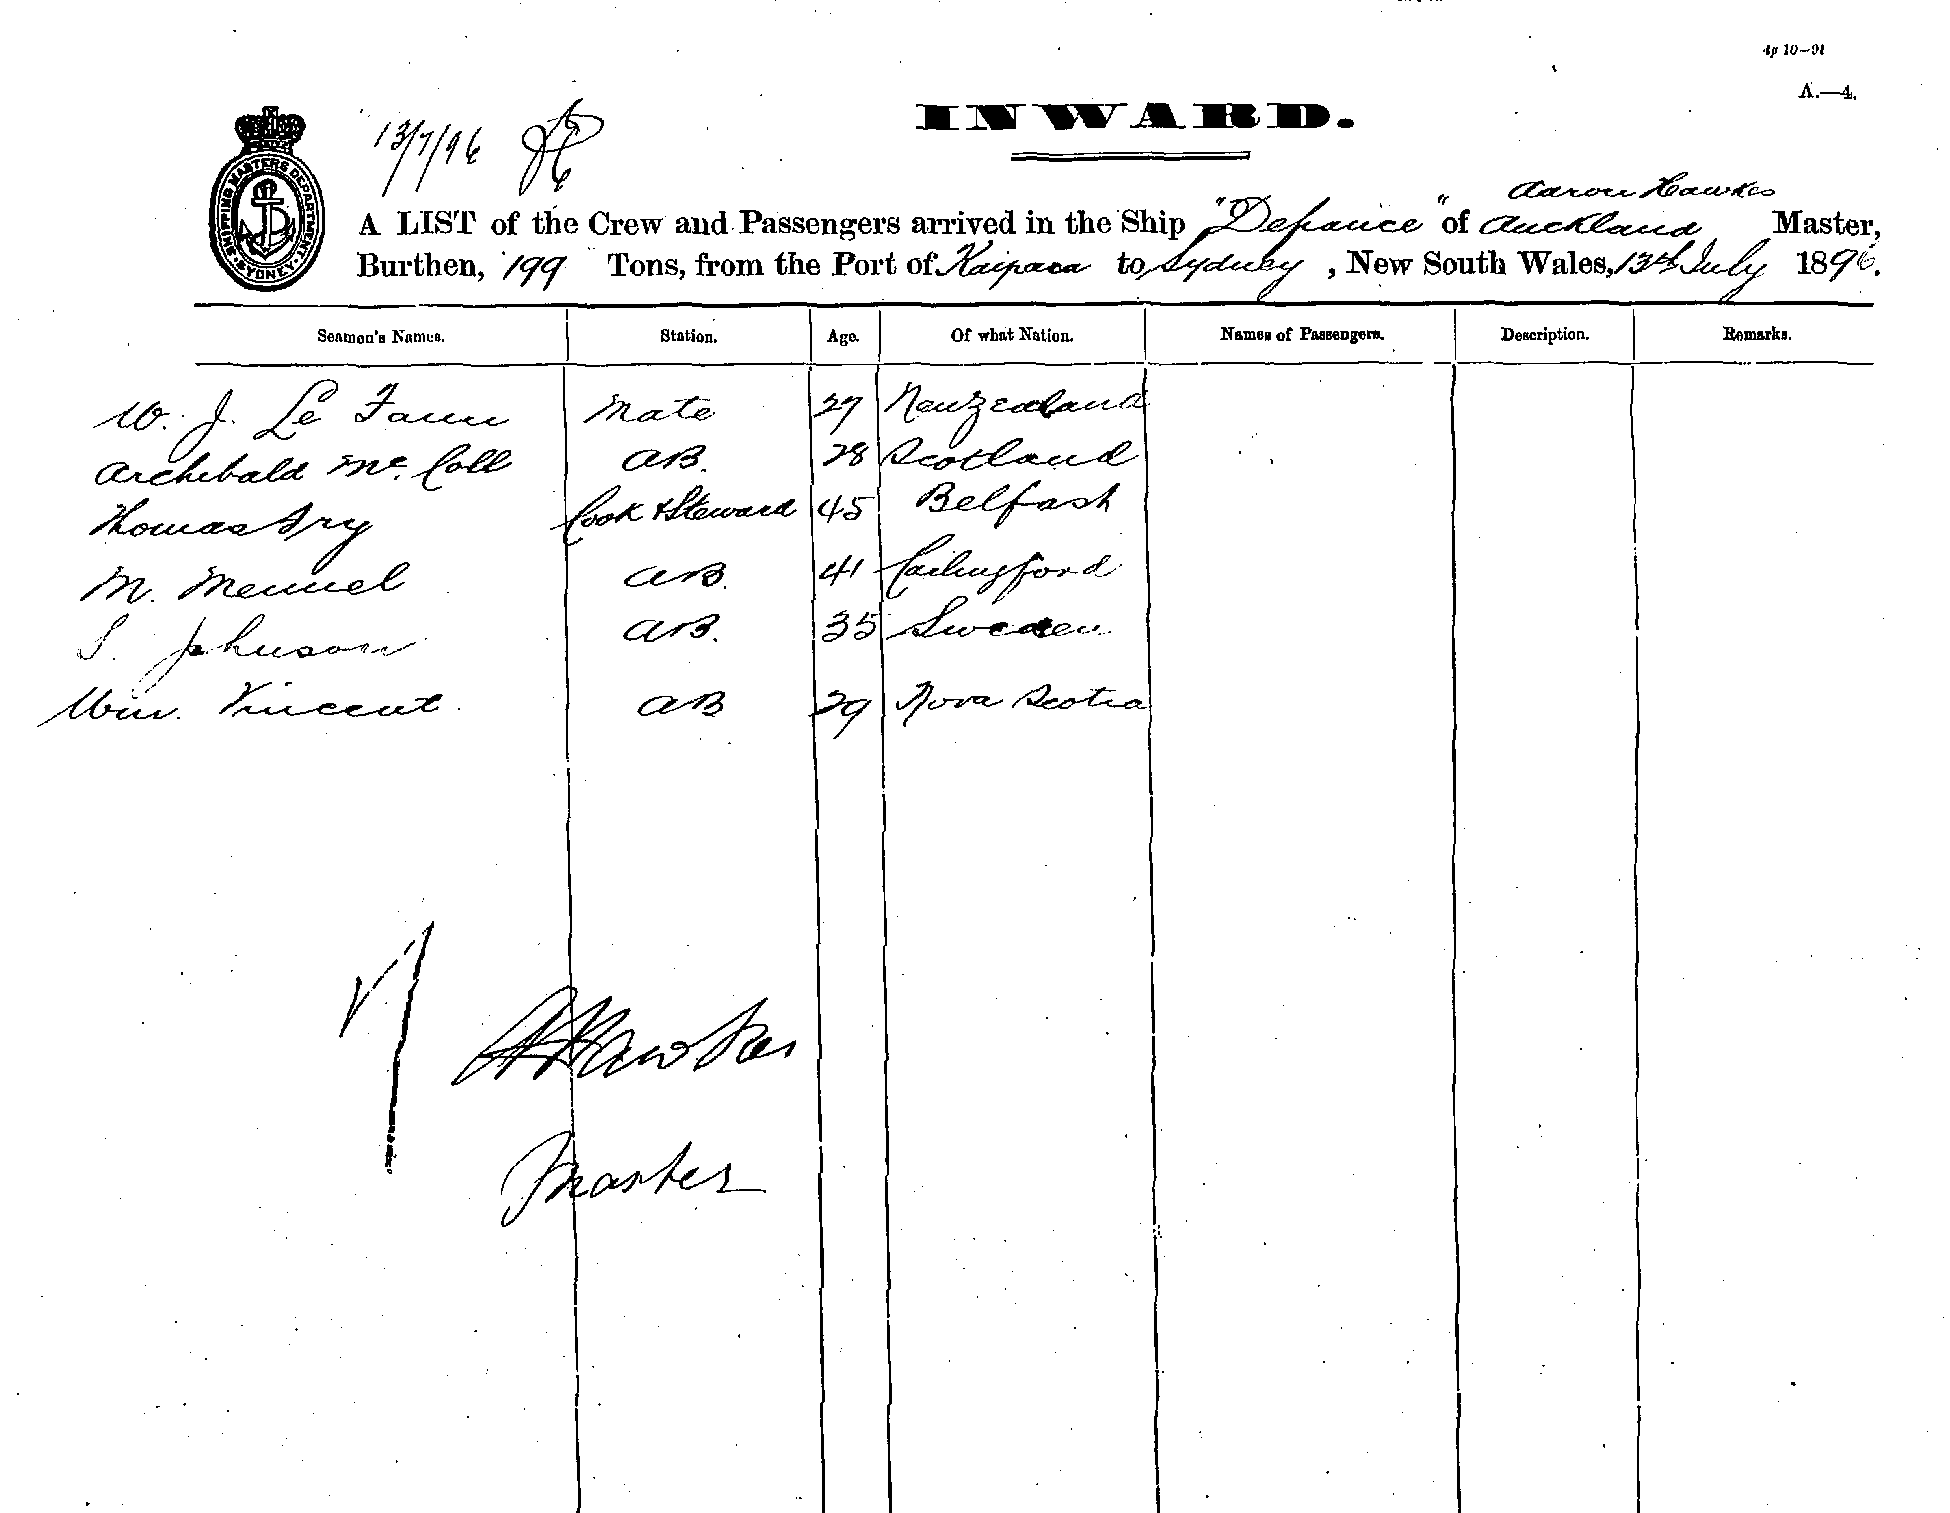 4p 10—91
A.—4.
INWARD.
13/7/96
SHIPPING MASTERS DEPARTMENT
SYDNEY
Aaron Hawkes
A LIST of the Crew and Passengers arrived in the Ship "Defiance" of Auckland Master,
Burthen, 199 Tons, from the Port of Kaipara to Sydney, New South Wales, 13th July 1896.
Seamen's Names. Station. Age. Of what Nation. Names of Passengers. Description. Remarks.
W. J. Le Faun Mate 27 New Zealand
Archibald Mc. Coll AB. 28 Scotland
Thomas Fry Cook & Steward 45 Belfast
M. Mennel AB. 41 Carlingford
S. Johnson AB. 35 Sweden
Wm. Vincent AB 29 Nova Scotia
A Hawkes
Master